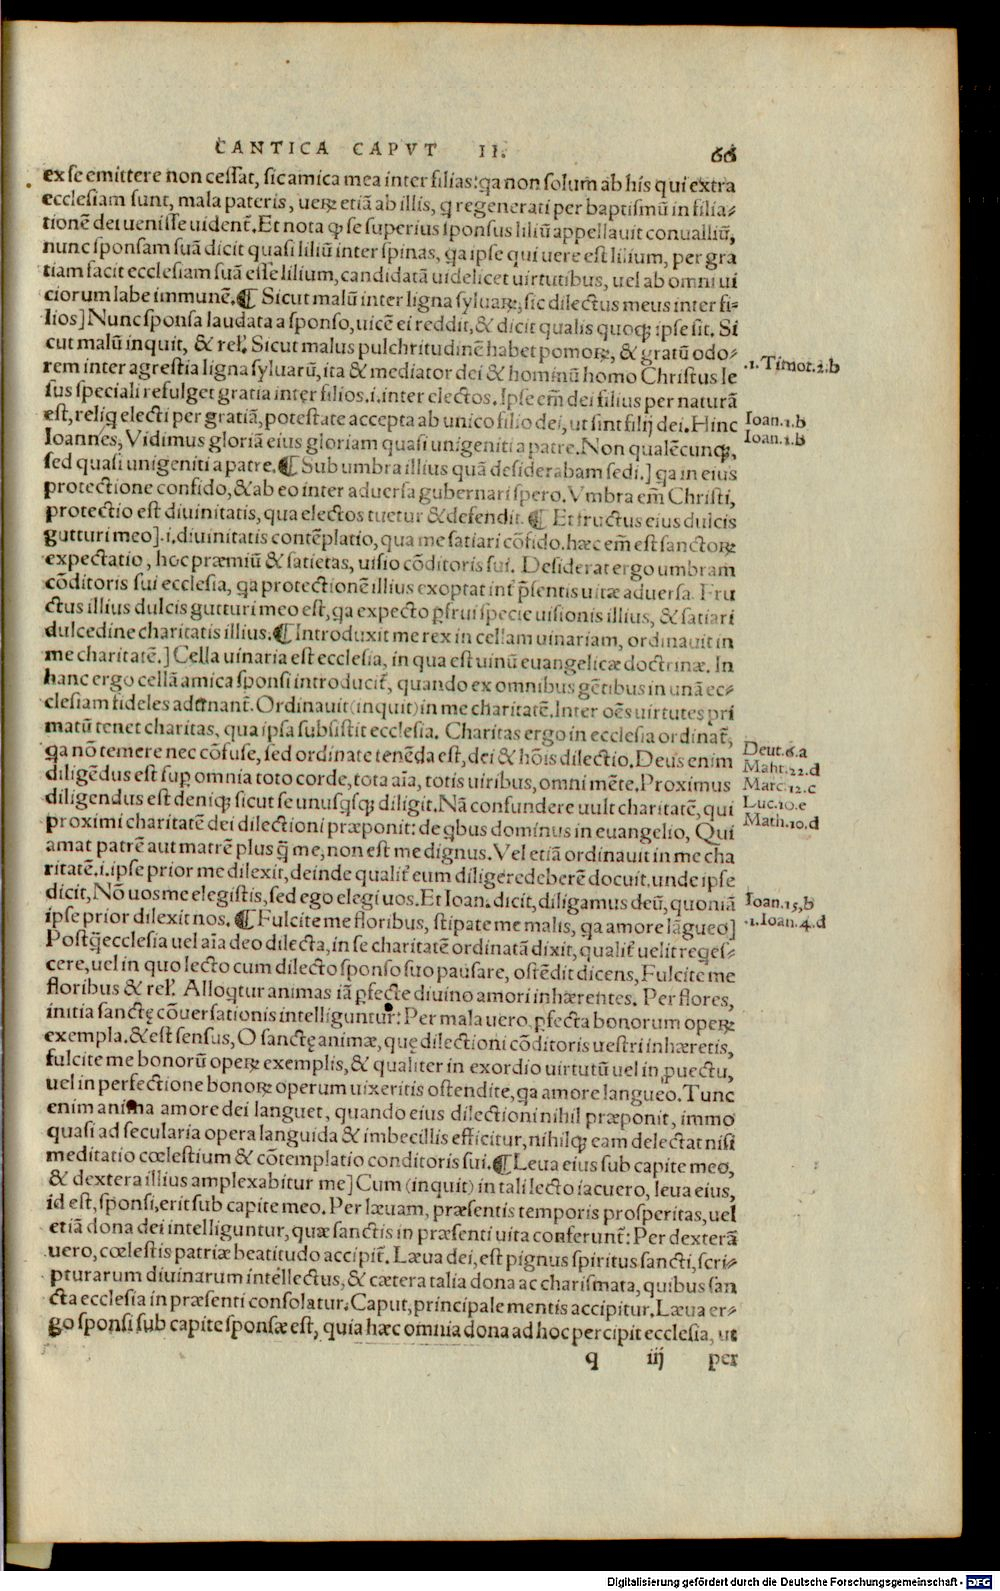 CANTICA CAPVT II. 66
ex se emittere non cessat, sic amica mea inter filias: ꝗa non solum ab his qui extra
ecclesiam sunt, mala pateris, ueꝝ etiã ab illis, ꝗ regenerati per baptismũ in filia⸗
tionẽ dei uenisse uident̃. Et nota ꝙ se superius sponsus liliũ appellauit conualliũ,
nunc sponsam suã dicit quasi liliũ inter spinas, ꝗa ipse qui uere est lilium, per gra
tiam facit ecclesiam suã esse lilium, candidatã uidelicet uirtutibus, uel ab omni ui
ciorum labe immunẽ. ¶ Sicut malũ inter ligna syluaꝝ, sic dilectus meus inter fi⸗
lios] Nunc sponsa laudata a sponso, uicẽ ei reddit, & dicit qualis quoqꝫ ipse sit. Si
cut malũ inquit, & rel̃. Sicut malus pulchritudinẽ habet pomoꝝ, & gratũ odo⸗
rem inter agrestia ligna syluarũ, ita & mediator dei & hominũ homo Christus Ie
sus speciali refulget gratia inter filios .i. inter electos. Ipse em̃ dei filius per naturã
est, reliꝗ electi per gratiã, potestate accepta ab unico filio dei, ut sint filij dei. Hinc
Ioannes, Vidimus gloriã eius gloriam quasi unigeniti a patre. Non qualẽcunqꝫ,
sed quasi unigeniti a patre. ¶ Sub umbra illius quã desiderabam sedi.] ꝗa in eius
protectione confido, & ab eo inter aduersa gubernari spero. Vmbra em̃ Christi,
protectio est diuinitatis, qua electos tuetur & defendit. ¶ Et fructus eius dulcis
gutturi meo] .i. diuinitatis contẽplatio, qua me satiari cõfido. hæc em̃ est sanctoꝝ
expectatio, hoc præmiũ & satietas, uisio cõditoris sui. Desiderat ergo umbram
cõditoris sui ecclesia, ꝗa protectionẽ illius exoptat int̃ p̃sentis uitæ aduersa. Fru
ctus illius dulcis gutturi meo est, ꝗa expecto ꝑfrui specie uisionis illius, & satiari
dulcedine charitatis illius. ¶ Introduxit me rex in cellam uinariam, ordinauit in
me charitatẽ.] Cella uinaria est ecclesia, in qua est uinũ euangelicæ doctrinæ. In
hanc ergo cellã amica sponsi introducit̃, quando ex omnibus gẽtibus in unã ec⸗
clesiam fideles adunant̃. Ordinauit (inquit) in me charitatẽ. Inter oẽs uirtutes pri
matũ tenet charitas, qua ipsa subsistit ecclesia. Charitas ergo in ecclesia ordinat̃,
ꝗa nõ temere nec cõfuse, sed ordinate tenẽda est, dei & hõis dilectio. Deus enim
diligẽdus est suꝑ omnia toto corde, tota aĩa, totis uiribus, omni mẽte. Proximus
diligendus est deniqꝫ sicut se unusꝗsqꝫ diligit. Nã confundere uult charitatẽ, qui
proximi charitatẽ dei dilectioni præponit: de ꝗbus dominus in euangelio, Qui
amat patrẽ aut matrẽ plus ꝗ̃ me, non est me dignus. Vel etiã ordinauit in me cha
ritatẽ .i. ipse prior me dilexit, deinde qualit̃ eum diligere deberẽ docuit, unde ipse
dicit, Nõ uos me elegistis, sed ego elegi uos. Et Ioan. dicit, diligamus deũ, quoniã
ipse prior dilexit nos. ¶ Fulcite me floribus, stipate me malis, ꝗa amore lãgueo]
Postꝗ̃ ecclesia uel aĩa deo dilecta, in se charitatẽ ordinatã dixit, qualit̃ uelit reqes⸗
cere, uel in quo lecto cum dilecto sponso suo pausare, ostẽdit dicens, Fulcite me
floribus & rel̃. Alloꝗtur animas iã ꝑfecte diuino amori inhærentes. Per flores,
initia sanctę cõuersationis intelliguntur: Per mala uero, ꝑfecta bonorum opeꝝ
exempla. & est sensus, O sanctę animæ, quę dilectioni cõditoris uestri inhæretis,
fulcite me bonorũ opeꝝ exemplis, & qualiter in exordio uirtutũ uel in ꝓuectu,
uel in perfectione bonoꝝ operum uixeritis ostendite, ꝗa amore langueo. Tunc
enim anima amore dei languet, quando eius dilectioni nihil præponit, immo
quasi ad secularia opera languida & imbecillis efficitur, nihilqꝫ eam delectat nisi
meditatio cœlestium & cõtemplatio conditoris sui. ¶ Leua eius sub capite meo,
& dextera illius amplexabitur me] Cum (inquit) in tali lecto iacuero, leua eius,
id est, sponsi, erit sub capite meo. Per læuam, præsentis temporis prosperitas, uel
etiã dona dei intelliguntur, quæ sanctis in præsenti uita conferunt̃: Per dexterã
uero, cœlestis patriæ beatitudo accipit̃. Læua dei, est pignus spiritus sancti, scri⸗
pturarum diuinarum intellectus, & cætera talia dona ac charismata, quibus san
cta ecclesia in præsenti consolatur. Caput, principale mentis accipitur. Læua er⸗
go sponsi sub capite sponsæ est, quia hæc omnia dona ad hoc percipit ecclesia, ut
q iij per
.1. Timot. 2. b
Ioan. 1. b
Ioan. 1. b
Deut. 6. a
Math. 22. d
Marc. 12. c
Luc. 10. e
Math. 10. d
Ioan. 15, b
.1. Ioan. 4. d
Digitalisierung gefördert durch die Deutsche Forschungsgemeinschaft - DFG